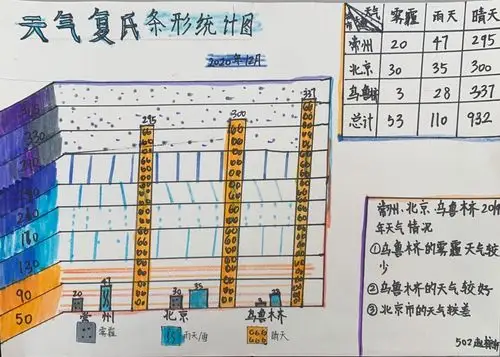 天气复式条形统计图
2020年12月
天气 雾霾 雨天 晴天
常州 20 47 295
北京 30 35 300
乌鲁木齐 3 28 337
总计 53 110 932
295
300
337
130
90
50
20 47
30 35
3 28
常州 北京 乌鲁木齐
雾霾 雨天/雨 晴天
常州、北京、乌鲁木齐 20
年天气情况
①乌鲁木齐的雾霾天气较
少
②乌鲁木齐的天气较好
③北京市的天气较差
502